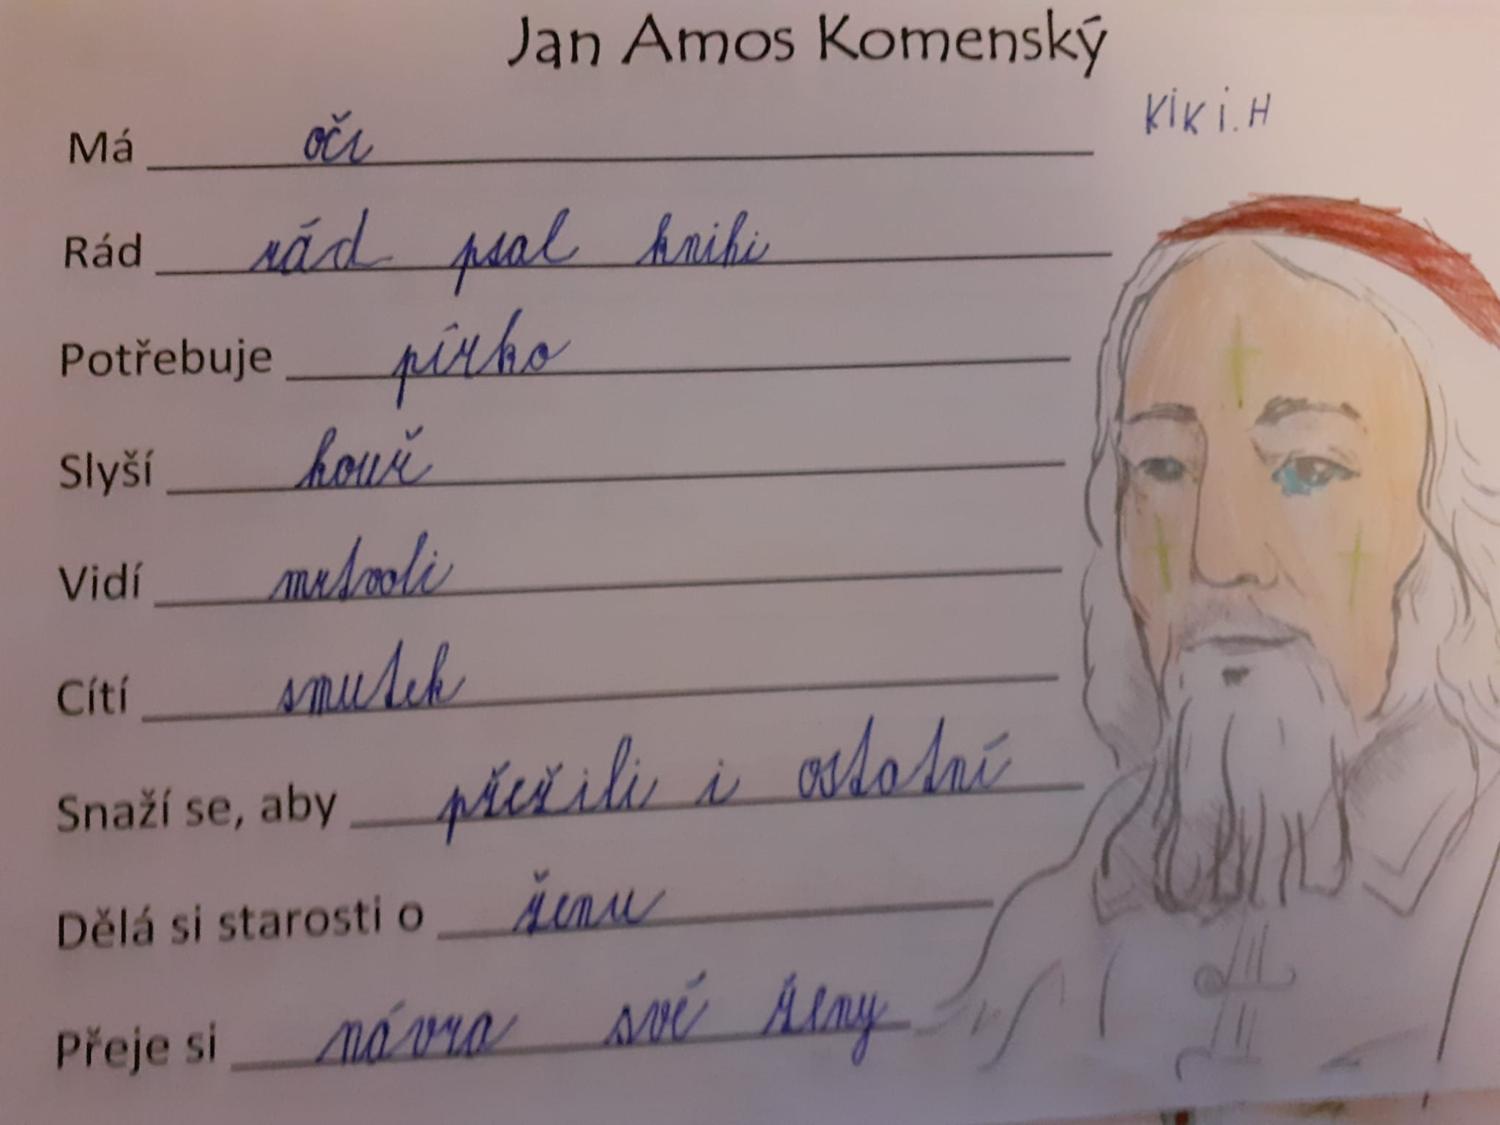 Jan Amos Komenský
KiKi.H
Má oči
Rád rád psal knihi
Potřebuje pírko
Slyší kouř
Vidí mrtvoli
Cítí smutek
Snaží se, aby přežili i ostatní
Dělá si starosti o ženu
Přeje si návra své ženy